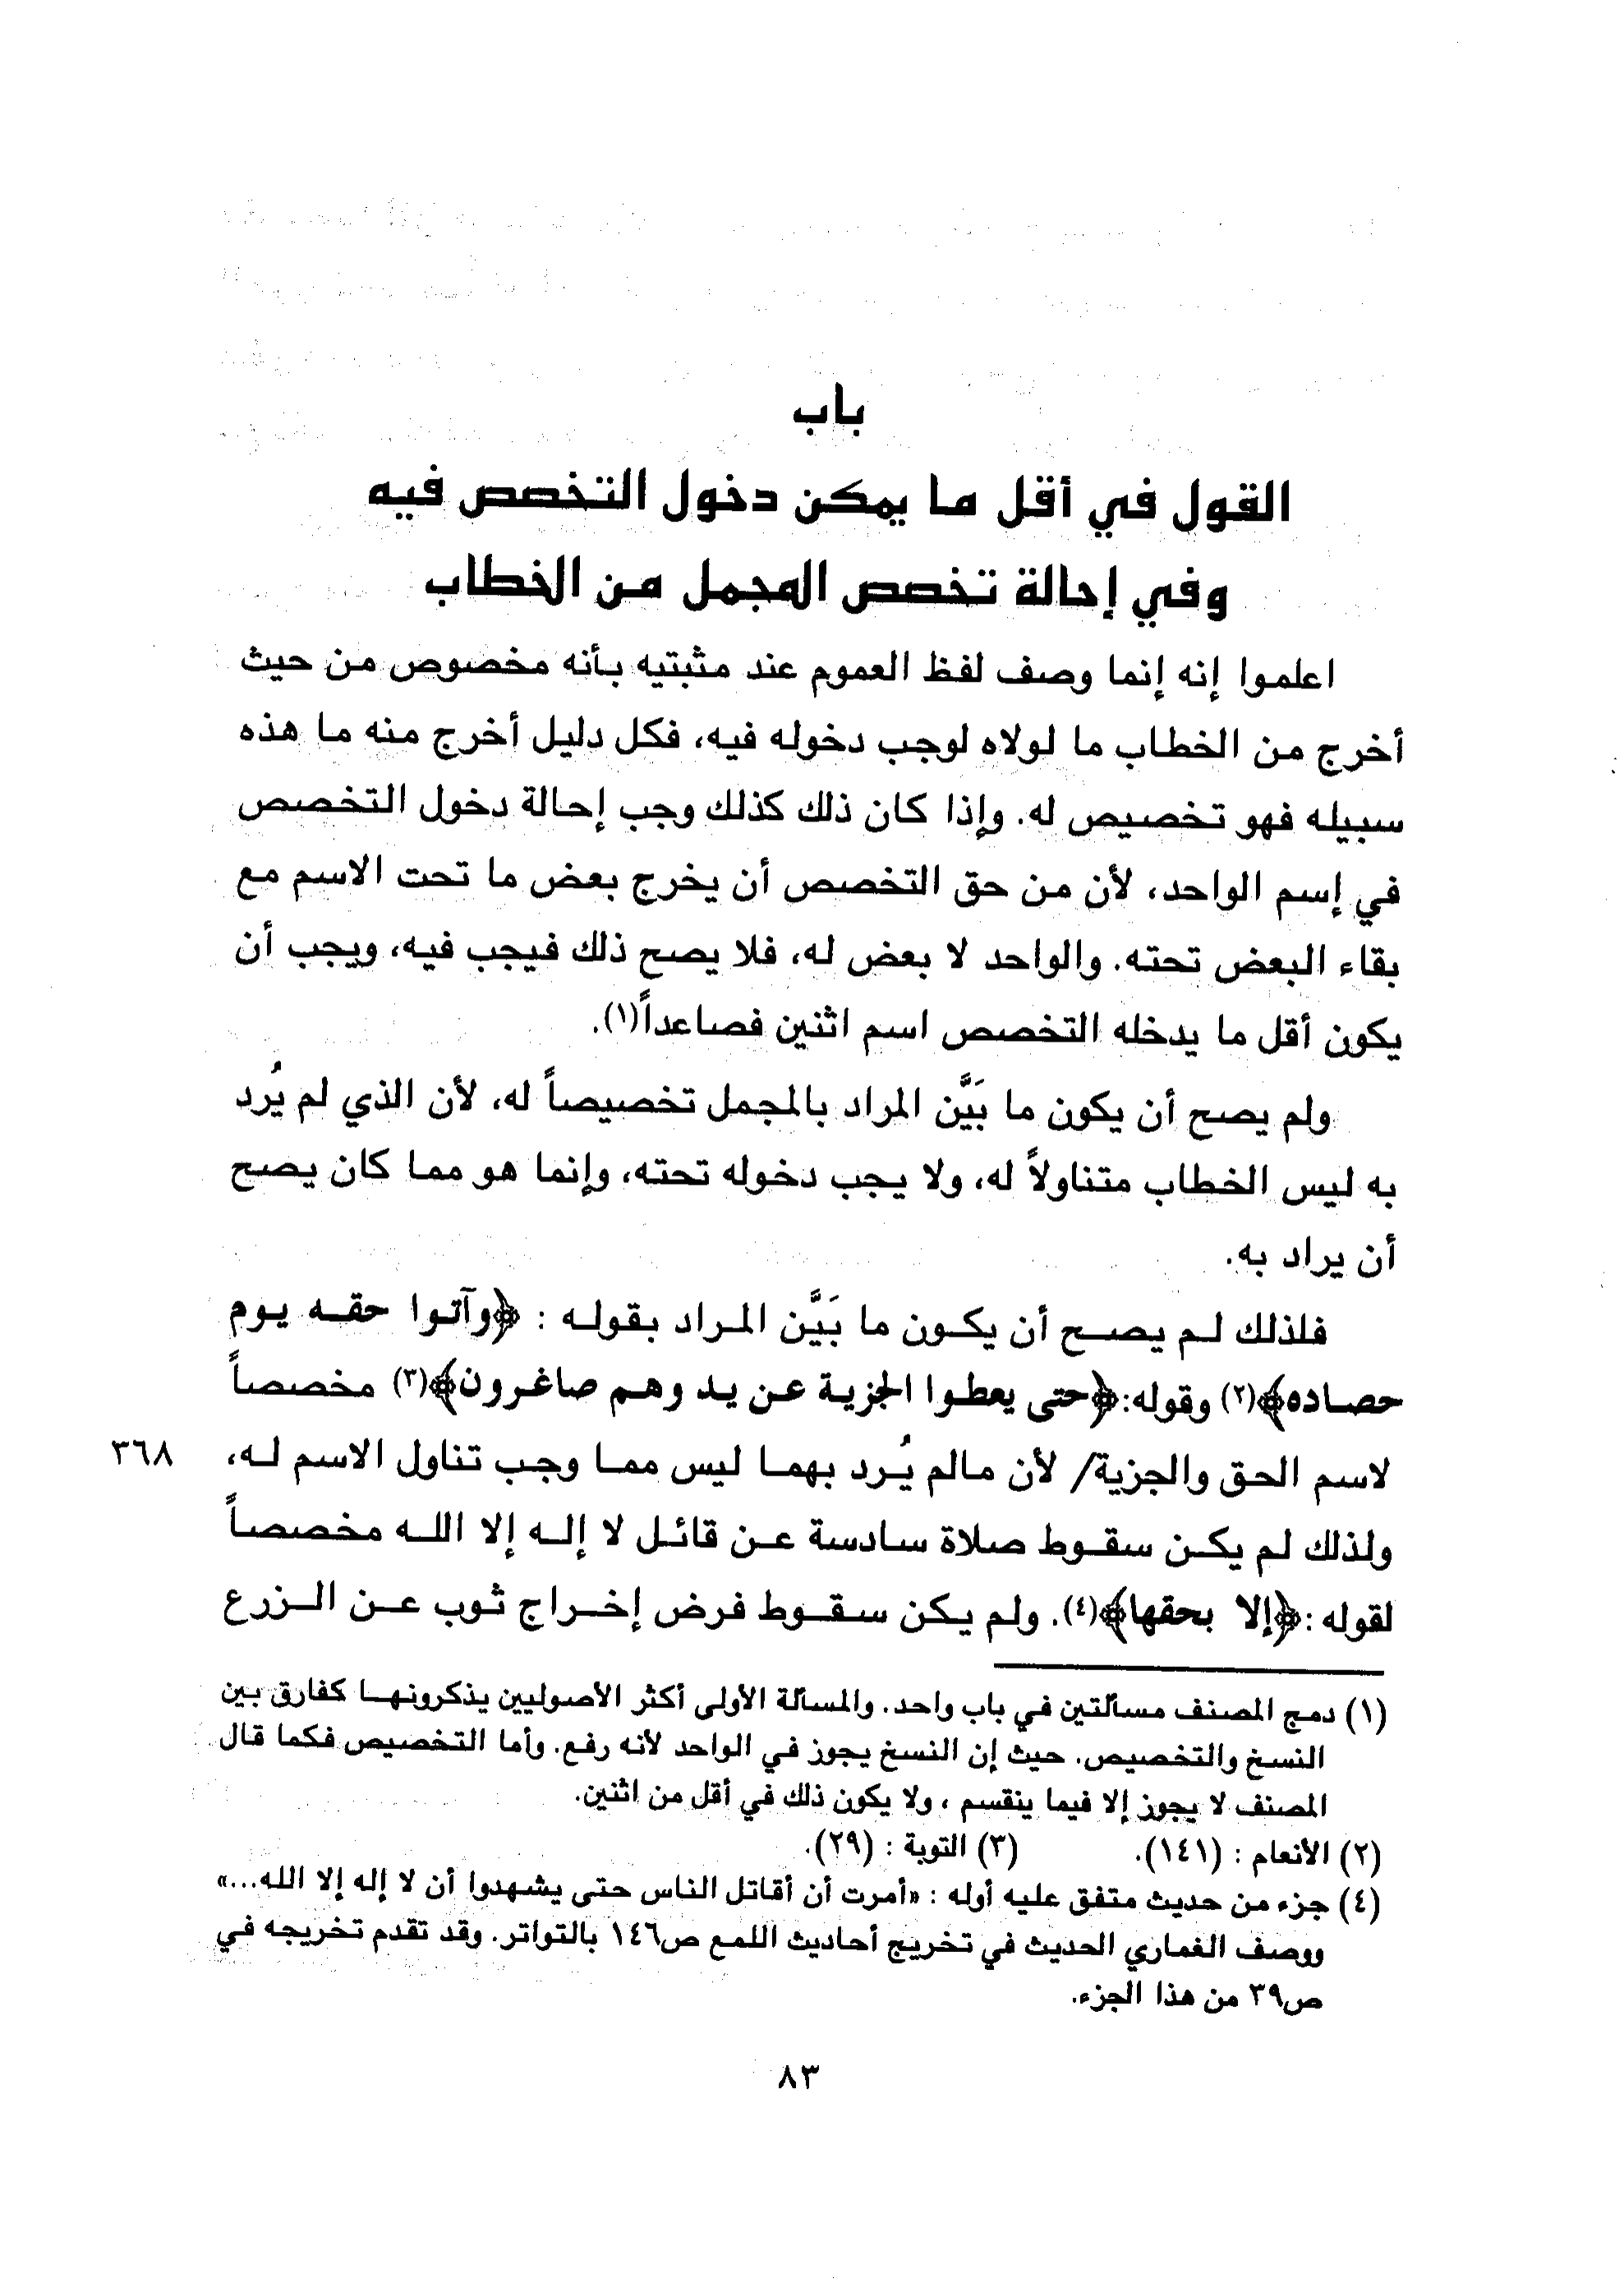 باب
القول في أقل ما يمكن دخول التخصص فيه
وفي إحالة تخصص المجمل من الخطاب
اعلموا إنه إنما وصف لفظ العموم عند مثبتيه بأنه مخصوص من حيث
أخرج من الخطاب ما لولاه لوجب دخوله فيه، فكل دليل أخرج منه ما هذه
سبيله فهو تخصيص له. وإذا كان ذلك كذلك وجب إحالة دخول التخصص
في إسم الواحد، لأن من حق التخصص أن يخرج بعض ما تحت الاسم مع
بقاء البعض تحته. والواحد لا بعض له، فلا يصح ذلك فيجب فيه، ويجب أن
يكون أقل ما يدخله التخصص اسم اثنين فصاعداً(١).
ولم يصح أن يكون ما بَيَّن المراد بالمجمل تخصيصاً له، لأن الذي لم يُرد
به ليس الخطاب متناولاً له، ولا يجب دخوله تحته، وإنما هو مما كان يصح
أن يراد به.
فلذلك لم يصح أن يكون ما بَيَّن المراد بقوله : ﴿وآتوا حقه يوم
حصاده﴾(٢) وقوله:﴿حتى يعطوا الجزية عن يد وهم صاغرون﴾(٣) مخصصاً
لاسم الحق والجزية/ لأن مالم يُرد بهما ليس مما وجب تناول الاسم له، ٣٦٨
ولذلك لم يكن سقوط صلاة سادسة عن قائل لا إله إلا الله مخصصاً
لقوله :﴿إلا بحقها﴾(٤). ولم يكن سقوط فرض إخراج ثوب عن الزرع
(١) دمج المصنف مسألتين في باب واحد. والمسألة الأولى أكثر الأصوليين يذكرونها كفارق بين
النسخ والتخصيص. حيث إن النسخ يجوز في الواحد لأنه رفع. وأما التخصيص فكما قال
المصنف لا يجوز إلا فيما ينقسم ، ولا يكون ذلك في أقل من اثنين.
(٢) الأنعام : (١٤١). (٣) التوبة : (٢٩).
(٤) جزء من حديث متفق عليه أوله : «أمرت أن أقاتل الناس حتى يشهدوا أن لا إله إلا الله...»
ووصف الغماري الحديث في تخريج أحاديث اللمع ص١٤٦ بالتواتر. وقد تقدم تخريجه في
ص٣٩ من هذا الجزء.
٨٣